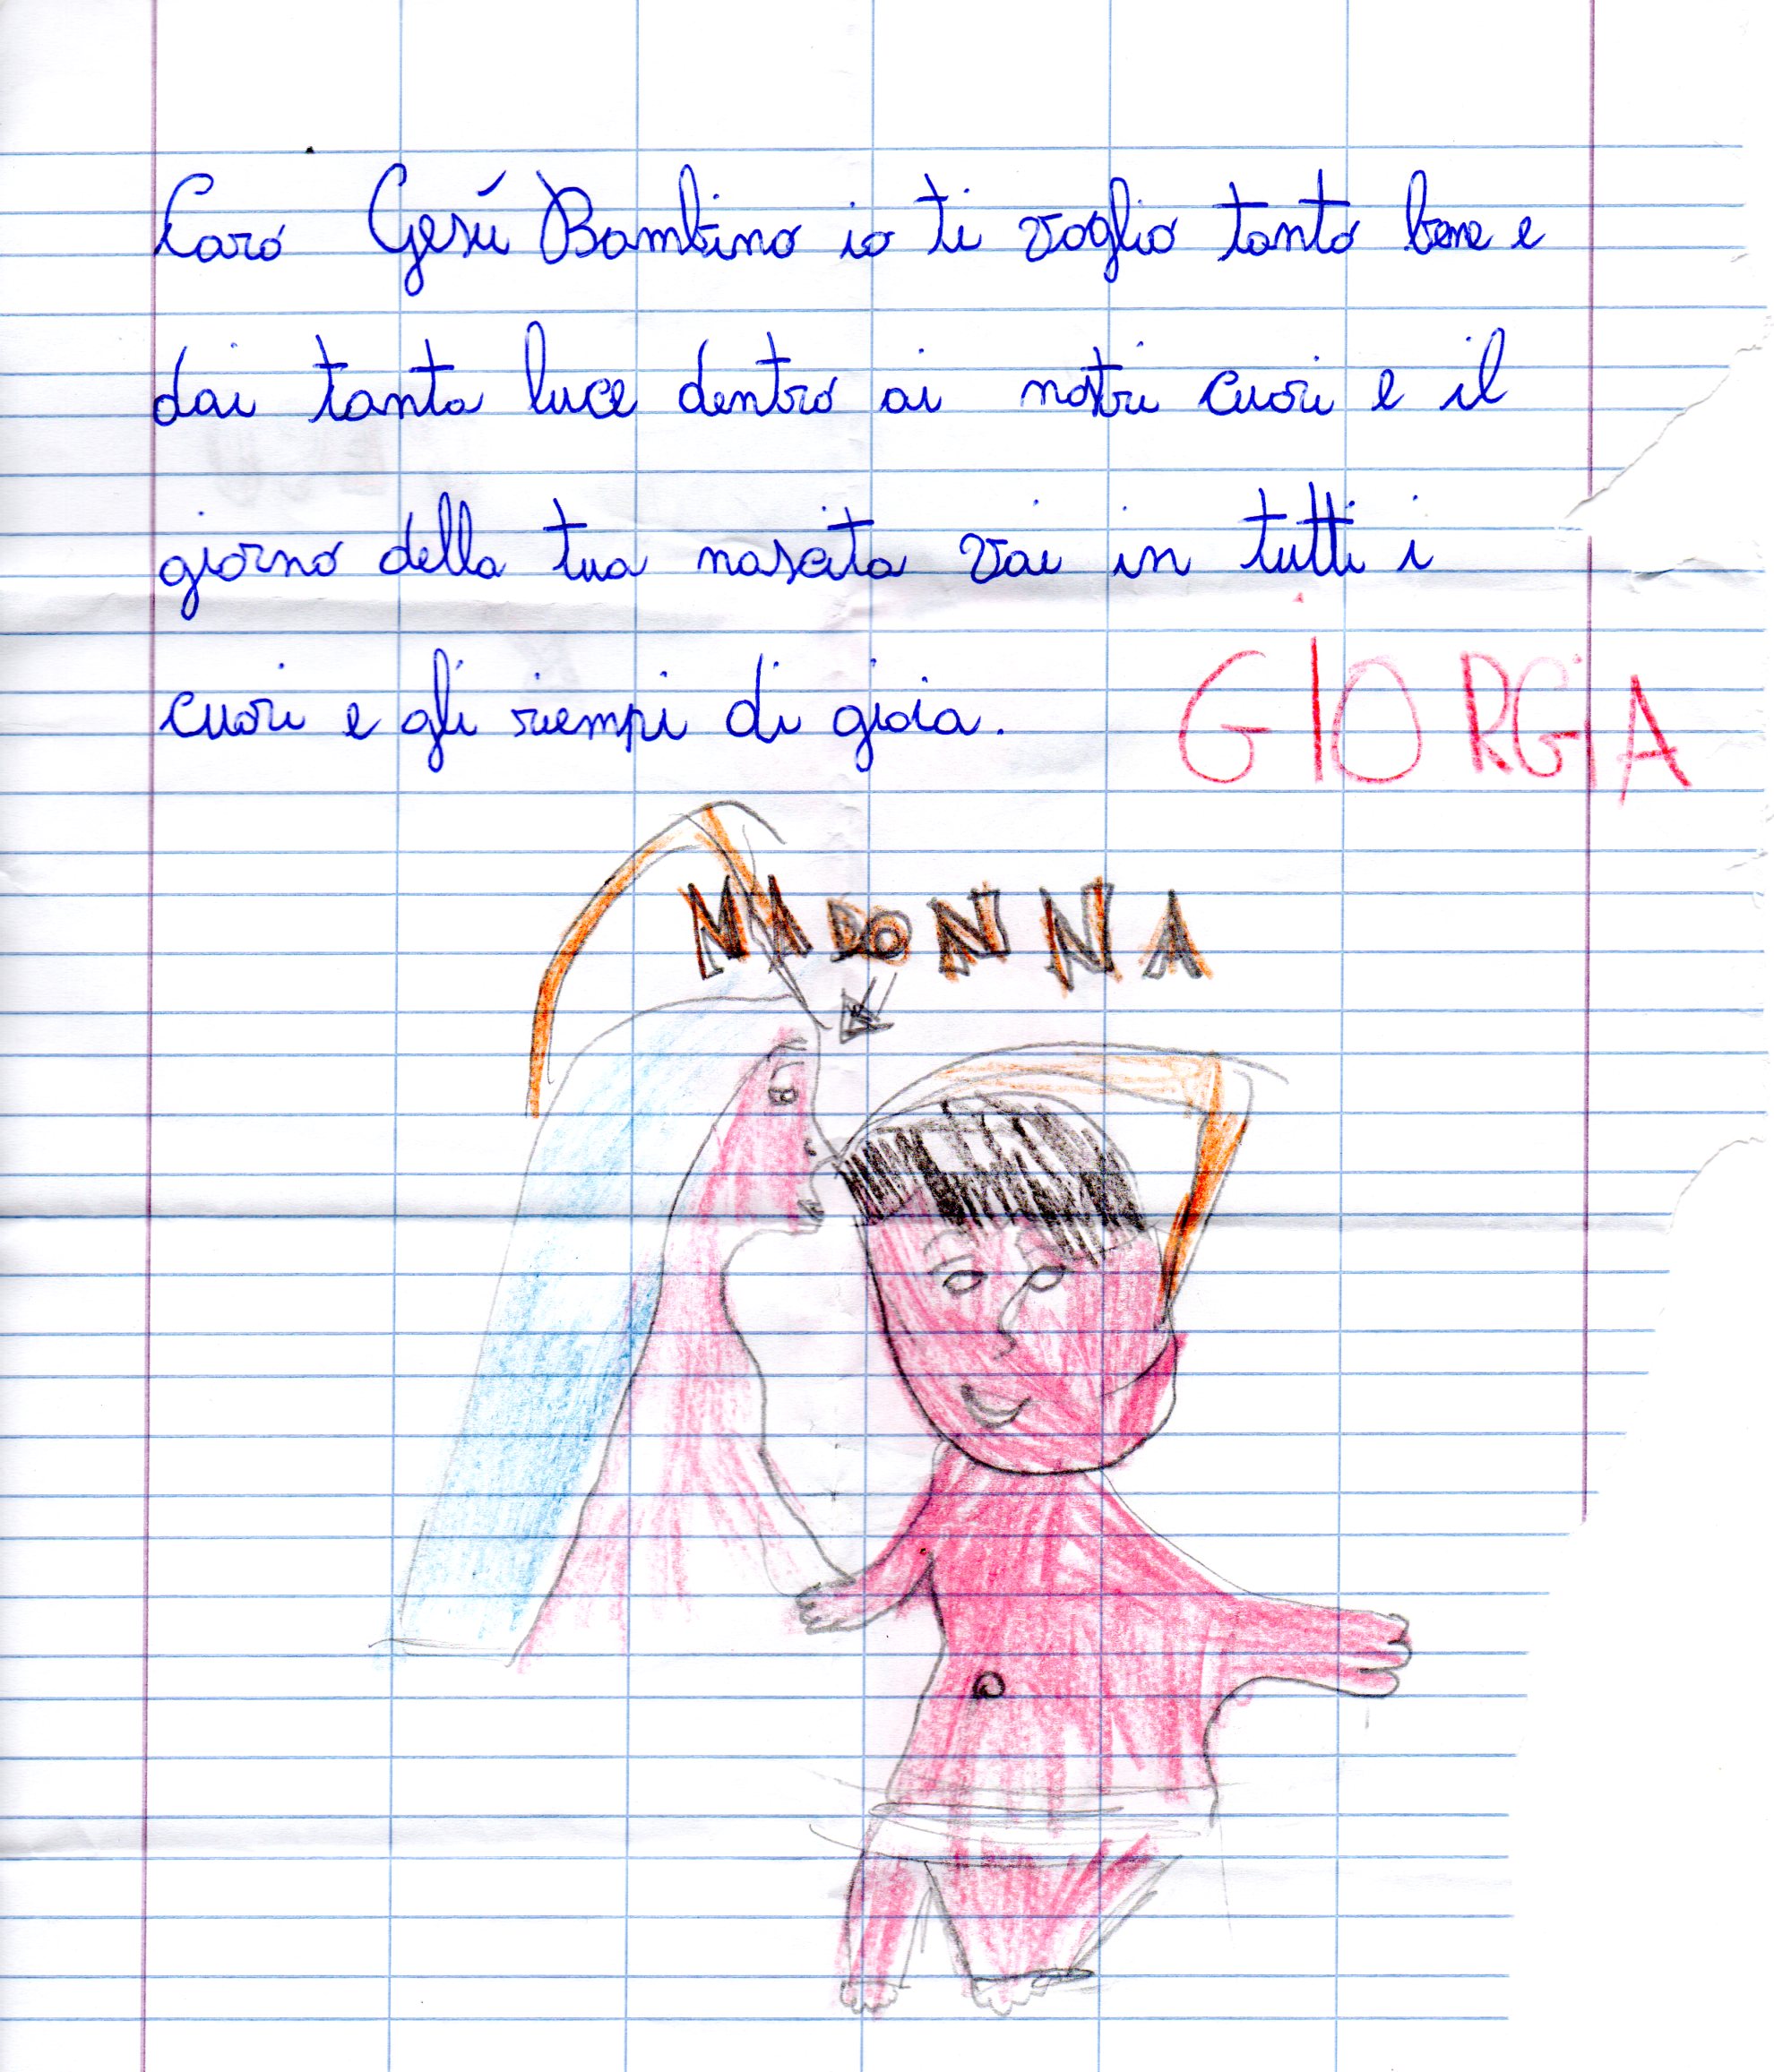 Caro Gesú Bambino io ti voglio tanto bene e
dai tanta luce dentro ai nostri cuori e il
giorno della tua nascita vai in tutti i
cuori e gli riempi di gioia.
GIORGIA
MADONNA